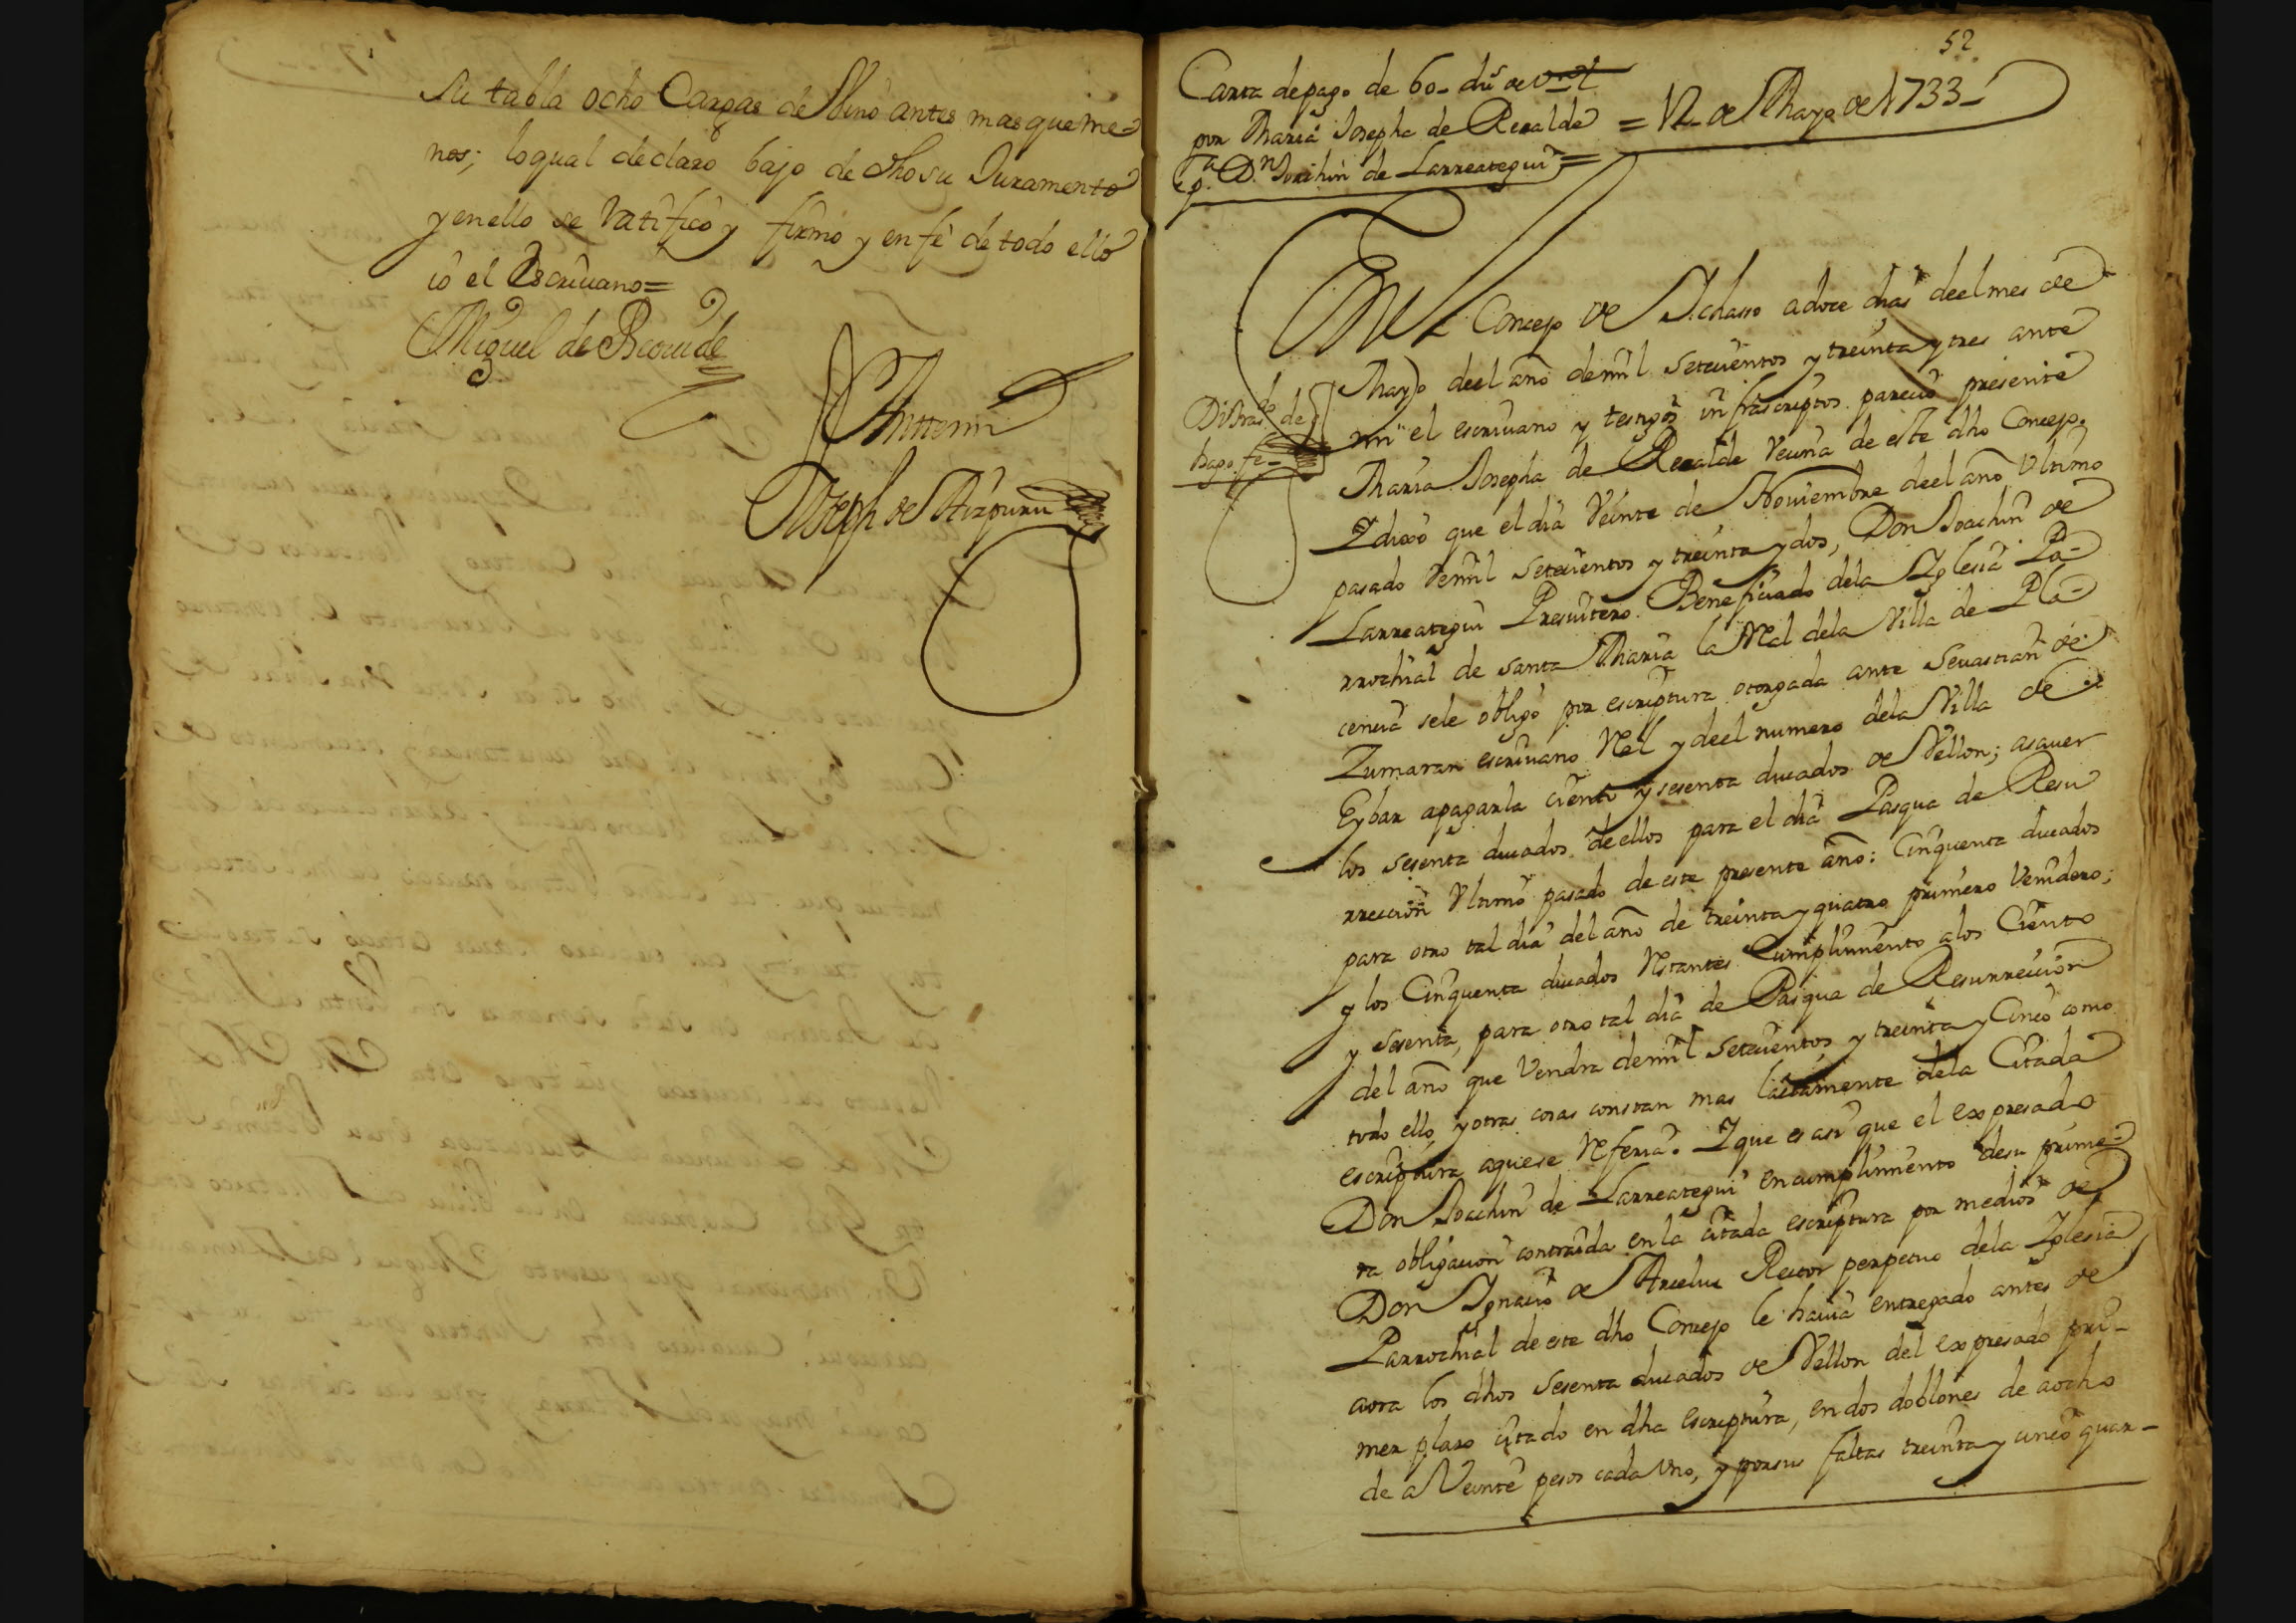 su tabla ocho Cargas de Vino antes mas que me=
nos; lo qual declaro bajo de dho su Juramento
y en ello se ratificò y firmò y en fè de todo ello
iò el Escriuano=
Miguel de
Anttemi
Joseph de Aizpuru
52
Carta de pago de 60 du.s de v.on
por Maria Josepha de Recalde
p.a D.n Joachin de Larreategui =
= 12 de Mayo de 1733
En el Concejo de Ichasso a doce dias deel mes de
Mayo deel año de mil setecientos y treinta y tres ante
mi el escriuano y testigos infrascriptos pareciò presente
Maria Josepha de Recalde Vecina de este dho Concejo.
Y dixò que el dia Veinte de Noviembre deel año Ultimo
pasado de mil setecientos y treinta y dos, Don Joachin de
Larreategui Presuitero Beneficiado dela Yglesia Pa-
rrochial de santa Maria la Real dela Villa de Pla-
cencia se le obligò por escriptura otorgada ante Sevastian de
Zumaran escriuano Real y deel numero dela Villa de
Eybar a pagarla ciento y sesenta ducados de Vellon; asauer
los sesenta ducados de ellos para el dia Pasqua de Resu
rreccion Ultimo pasado de este presente año: Cinquenta ducados
para otro tal dia del año de treinta y quatro primero Venidero;
y los Cinquenta ducados restantes Cumplimiento a los Ciento
y sesenta, para otro tal dia de Pasqua de Resurreccion
del año que Vendra de mil setecientos y treinta y Cinco como
todo ello, y otras cosas constan mas lactamente dela Citada
escriptura aquese referia. Y que es asi que el expresado
Don Joachin de Larreategui en cumplimiento de su prime-
ra obligacion contraida en la citada escriptura por medio de
Don Ignacio de Arcelus Rector perpetuo dela Yglesia
Parrochial de este dho Concejo le hauia entregado antes de
aora los dhos sesenta ducados de Vellon del expresado pri-
mer plazo citado en dha escriptura, en dos doblones de a ocho
de a Veinte pesos cada Uno, y por sus faltas treinta y cinco quar-
de
hago fe